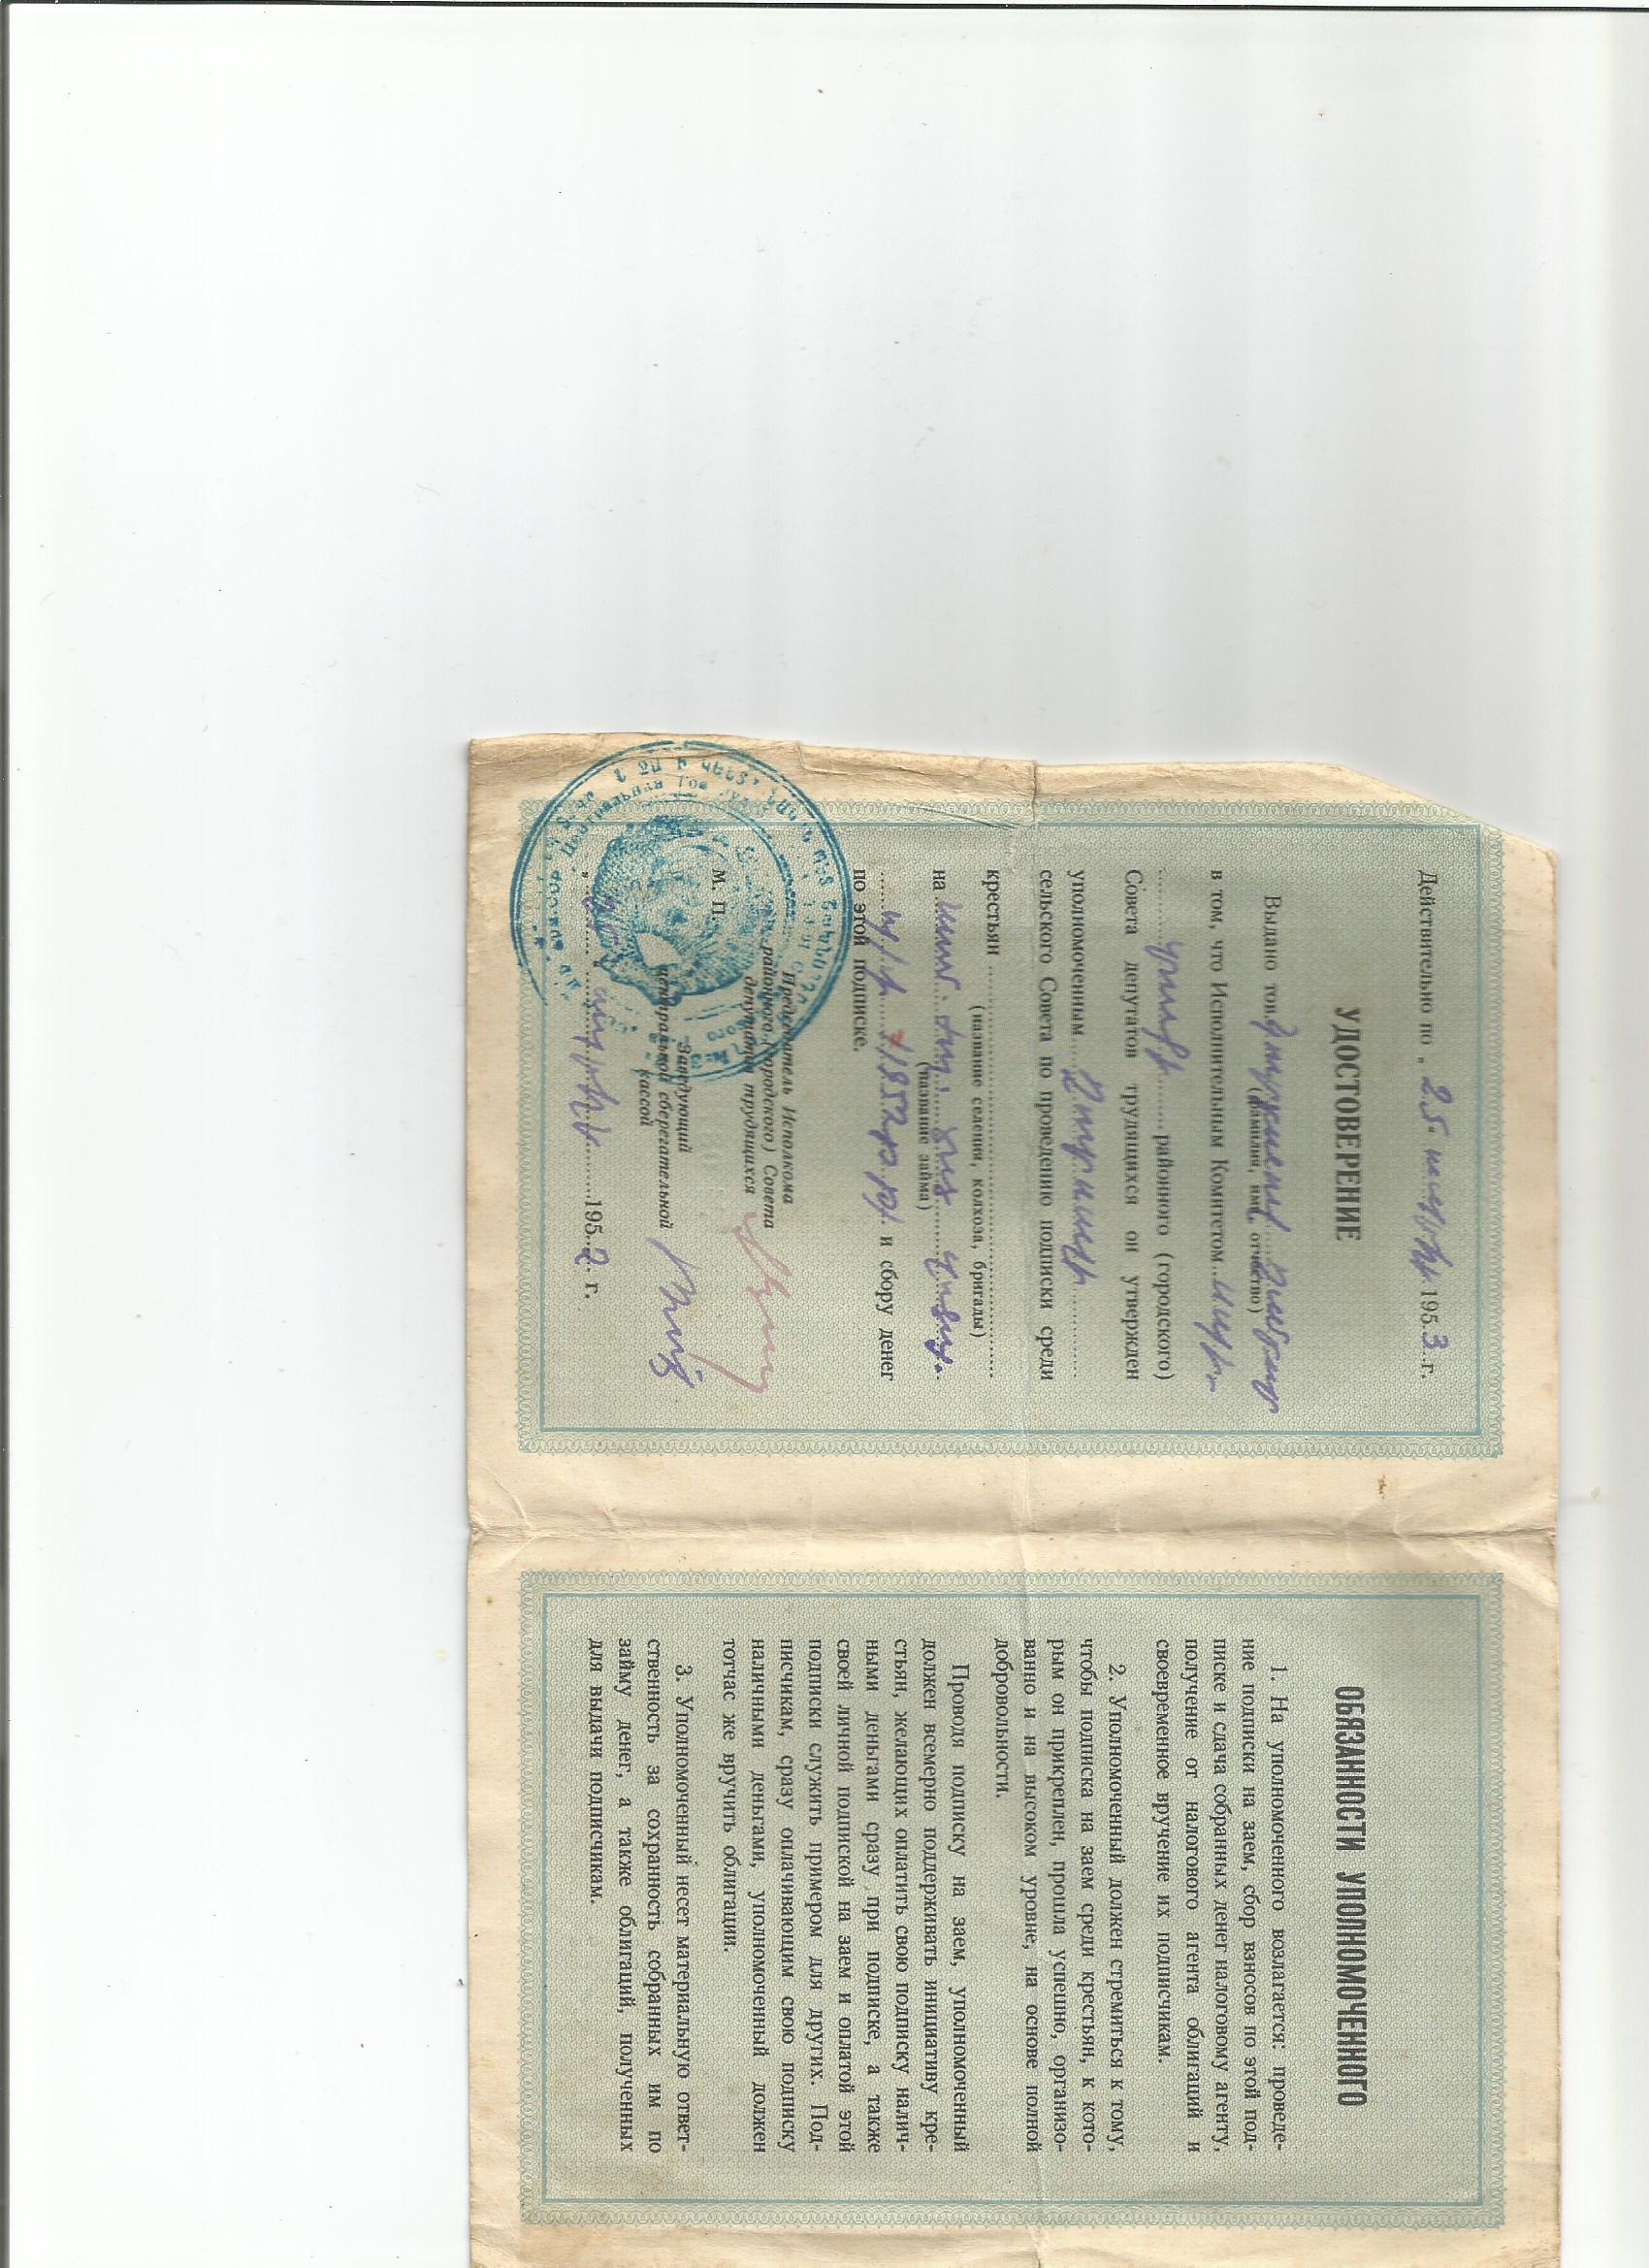 Действительно по „ 25. ապրիլի 1953 г.
УДОСТОВЕРЕНИЕ
Выдано тов.
(фамилия, имя, отчество)
в том, что Исполнительным Комитетом
районного (городского)
Совета депутатов трудящихся он утвержден
уполномоченным
сельского Совета по проведению подписки среди
крестьян
(название селения, колхоза, бригады)
на
(название займа)
1952 и сбору денег
по этой подписке.
Председатель Исполкома
районного (городского) Совета
депутатов трудящихся
М. П.
Заведующий
центральной сберегательной
кассой
„ 25 “ ապրիլի 1952 г.
ОБЯЗАННОСТИ УПОЛНОМОЧЕННОГО
1. На уполномоченного возлагается: проведе-
ние подписки на заем, сбор взносов по этой под-
писке и сдача собранных денег налоговому агенту,
получение от налогового агента облигаций и
своевременное вручение их подписчикам.
2. Уполномоченный должен стремиться к тому,
чтобы подписка на заем среди крестьян, к кото-
рым он прикреплен, прошла успешно, организо-
ванно и на высоком уровне, на основе полной
добровольности.
Проводя подписку на заем, уполномоченный
должен всемерно поддерживать инициативу кре-
стьян, желающих оплатить свою подписку налич-
ными деньгами сразу при подписке, а также
своей личной подпиской на заем и оплатой этой
подписки служить примером для других. Под-
писчикам, сразу оплачивающим свою подписку
наличными деньгами, уполномоченный должен
тотчас же вручить облигации.
3. Уполномоченный несет материальную ответ-
ственность за сохранность собранных им по
займу денег, а также облигаций, полученных
для выдачи подписчикам.